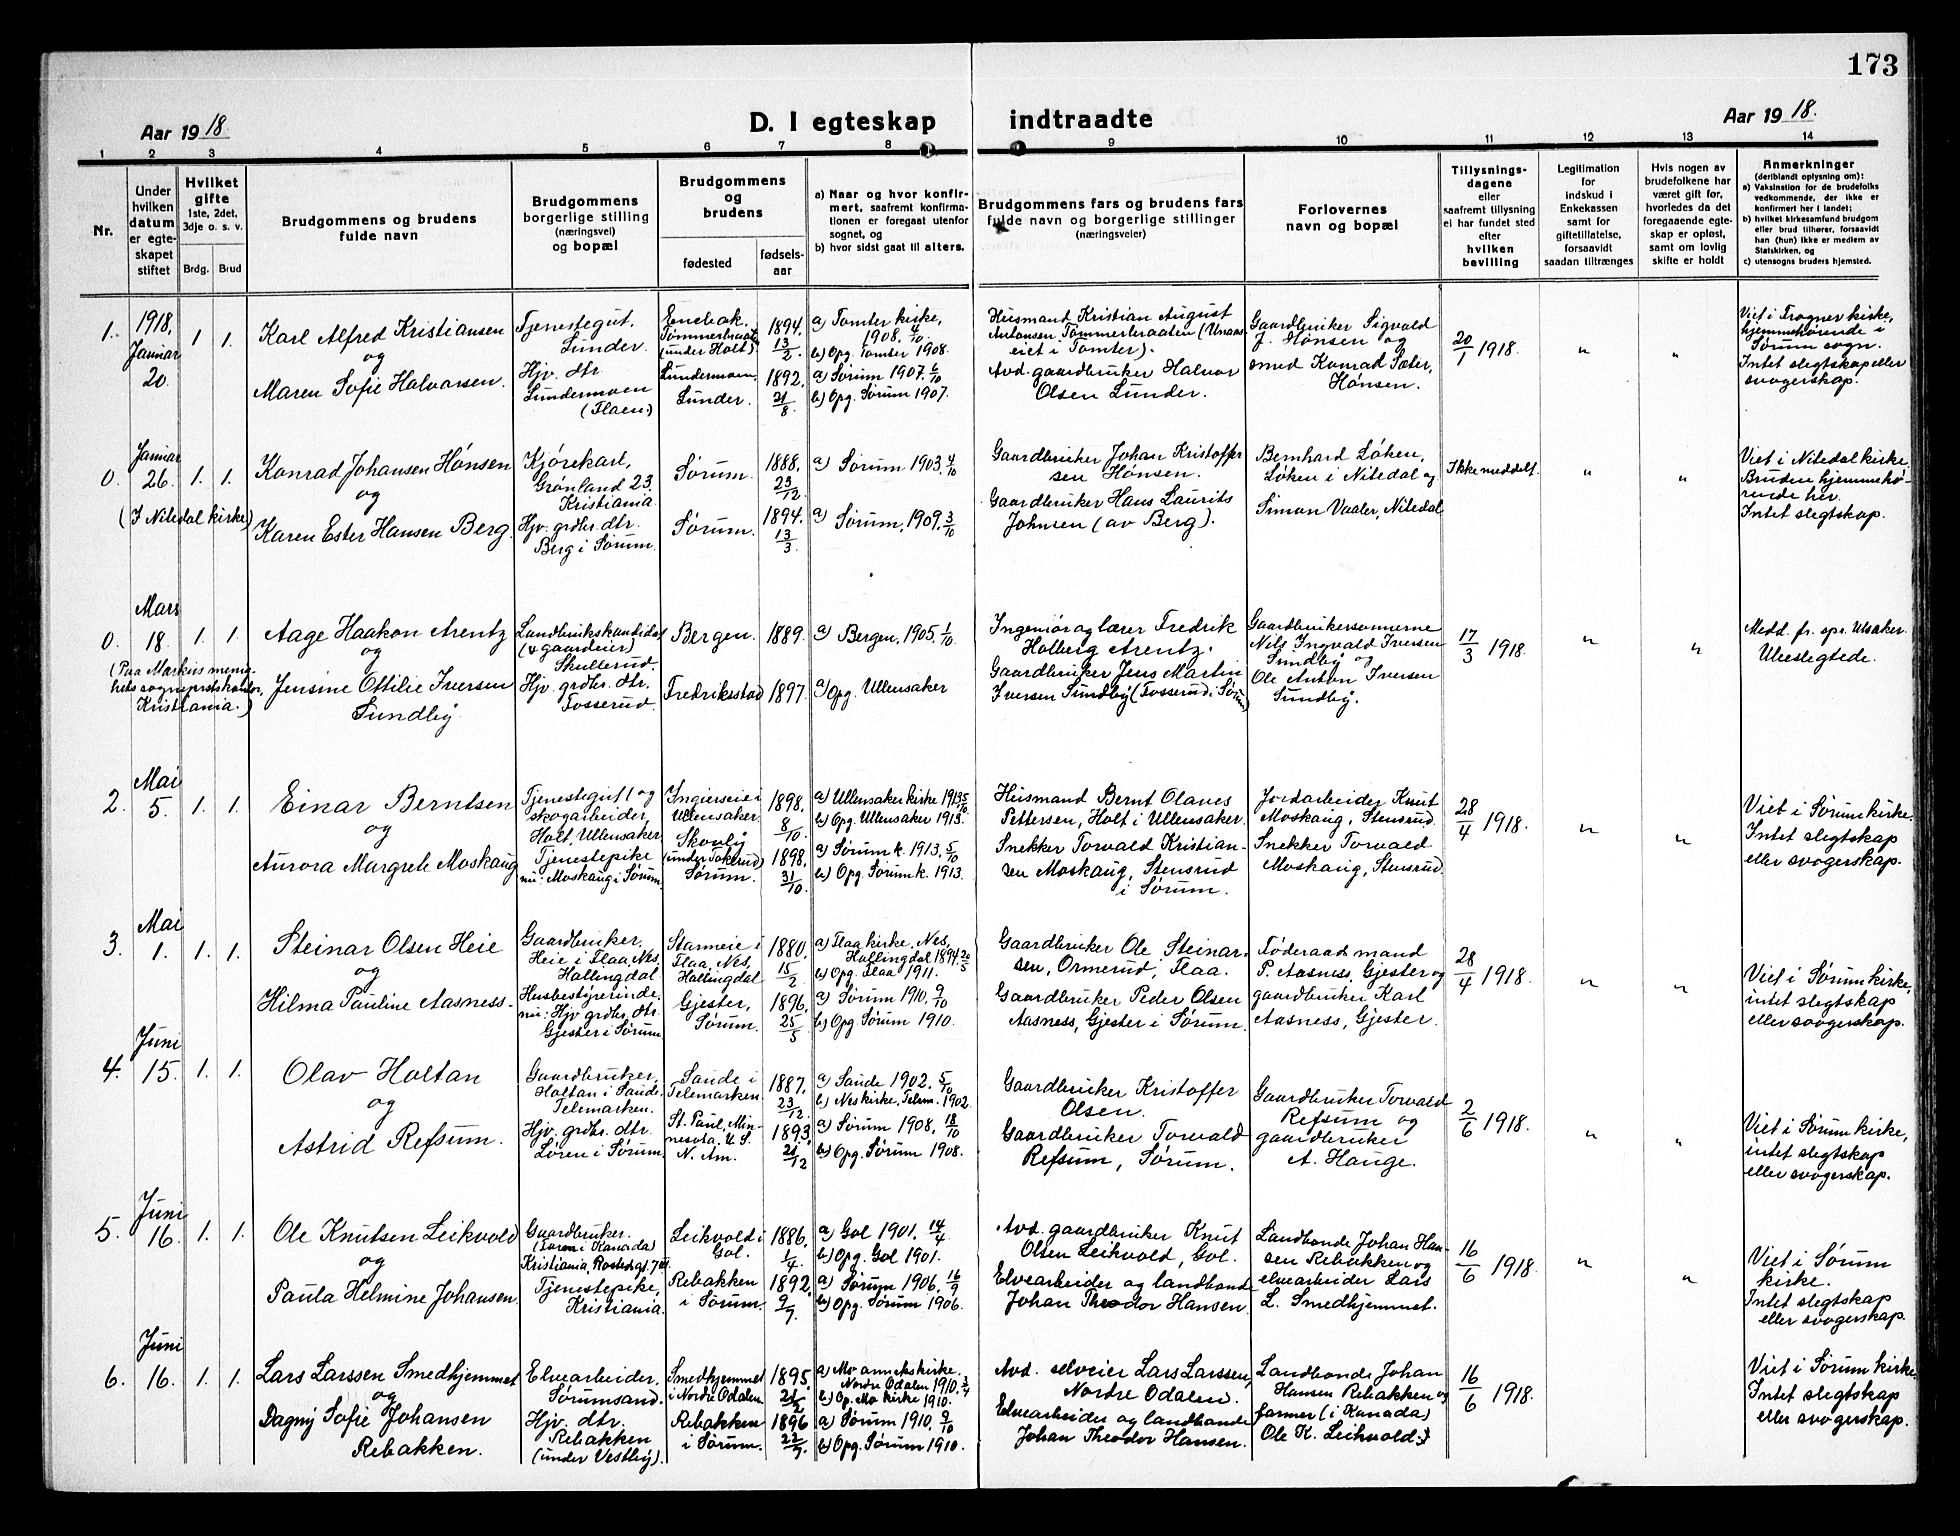 173
Aar 1918.
D. I egteskap indtraadte
Aar 1918.
1 2 3 4 5 6 7 8 9 10 11 12 13 14
Nr.
Under hvilken datum er egteskapet stiftet
Hvilket gifte
1ste, 2det, 3dje o. s. v.
Brdg. Brud
Brudgommens og brudens fulde navn
Brudgommens borgerlige stilling (næringsvei) og bopæl
Brudgommens og brudens
fødested
fødselsaar
a) Naar og hvor konfirmert, saafremt konfirmationen er foregaat utenfor sognet, og
b) hvor sidst gaat til alters.
Brudgommens fars og brudens fars fulde navn og borgerlige stillinger (næringsveier)
Forlovernes navn og bopæl
Tillysningsdagene eller saafremt tillysning ei har fundet sted efter hvilken bevilling
Legitimation for indskud i Enkekassen samt for giftetillatelse, forsaavidt saadan tiltrænges
Hvis nogen av brudefolkene har været gift før, hvorledes da det foregaaende egteskap er opløst, samt om lovlig skifte er holdt
Anmerkninger
(deriblandt oplysning om):
a) Vaksination for de brudefolks vedkommende, der ikke er konfirmert her i landet;
b) hvilket kirkesamfund brudgom eller brud tilhører, forsaavidt han (hun) ikke er medlem av Statskirken, og
c) utensogns bruders hjemsted.
1. 1918, Januar 20. 1 1
Karl Alfred Kristiansen
og
Maren Sofie Halvorsen.
Tjenestegut. Lunder.
Hjv. dtr. Lundermoen (Flaen)
Enebak. Tømmerbraaten (under Holt).
Lundermoen, Lunder.
1894. 13/2.
1892. 21/8.
a) Tomter kirke, 1908. 4/10.
b) Opg. Tomter 1908.
a) Sørum 1907. 6/10
b) Opg. Sørum 1907.
Husmand Kristian August
Antonsen Tømmerbraaten (Unaas
eiet i Tomter).
Avd. gaardbruker Halvor
Olsen Lunder.
Gaardbruker Sigvald
J. Hønsen og
smed Konrad Sæter,
Hønsen.
20/1 1918. " "
Viet i Frogner kirke,
hjemmehørende i
Sørum sogn.
Intet slegtskap eller
svogerskap.
0. Januar 26. 1. 1.
(I Nitedal kirke)
Konrad Johansen Hønsen
og
Karen Ester Hansen Berg.
Kjørekarl, Grønland 23. Kristiania.
Hjv. grdbr. dtr. Berg i Sørum.
Sørum.
Sørum.
1888. 23/12
1894. 13/3
a) Sørum 1903. 4/10
a) Sørum, 1909. 3/10
Gaardbruker Johan Kristoffer
sen Hønsen.
Gaardbruker Hans Laurits
Johnsen (av Berg).
Bernhard Løken,
Løken i Nitedal og
Simon Vaaler, Nitedal
Ikke meddelt. " "
Viet i Nitedal kirke.
Bruden hjemmehø-
rende her.
Intet slegtskap.
0. Mars 18. 1. 1.
(Paa Markus menig-
hets sogneprestkontor,
Kristiania.)
Aage Haakon Arentz
og
Jensine Ottilie Iversen
Sundby
Landbrukskandidat (& gaardeier) Skullerud.
Hjv. grdbr. dtr. Fosserud.
Bergen.
Fredriksstad
1889.
1897.
a) Bergen, 1905. 1/10
a) Opg. Ullensaker
Ingeniør og lærer Fredrik
Holberg Arentz.
Gaardbruker Jens Martin
Iversen Sundby (Fosserud i Sørum)
Gaardbrukersønnerne
Nils Ingvald Iversen
Sundby og
Ole Anton Iversen
Sundby.
17/3 1918. " "
Medd. fr. spr. Ulsaker.
Ubeslegtede.
2. Mai 5. 1. 1.
Einar Berntsen
og
Aurora Margrete Moskaug
Tjenestegut og skogarbeider, Holt, Ullensaker
Tjenestepike nu: Moskaug i Sørum.
Ingierseie i Ullensaker.
Skovly (under Tokerud) Sørum.
1898. 8/10
1898. 31/10
a) Ullensaker kirke 1913 5/10
b) Opg. Ullensaker 1913.
a) Sørum k. 1913. 5/10
b) Opg. Sørum k. 1913.
Husmand Bernt Olaves
Pettersen, Holt i Ullensaker.
Snekker Torvald Kristian-
sen Moskaug, Stensrud
i Sørum.
Jordarbeider Knut
Moskaug, Stensrud.
Snekker Torvald
Moskaug, Stensrud.
28/4 1918. " "
Viet i Sørum kirke.
Intet slegtskap
eller svogerskap.
3. Mai 1. 1. 1.
Steinar Olsen Heie
og
Hilma Pauline Aasness.
Gaardbruker. Heie i Flaa, Nes, Hallingdal
Husbestyrerinde. nu: Hjv. grdbr. dtr. Gjester i Sørum.
Starneie i Flaa, Nes, Hallingdal
Gjester, Sørum.
1880. 15/2
1896. 25/5
a) Flaa kirke, Nes, Hallingdal 1894 20/5
b) Opg. Flaa 1911.
a) Sørum 1910. 9/10
b) Opg. Sørum 1910.
Gaardbruker Ole Steinar-
sen, Ormerud, Flaa.
Gaardbruker Peder Olsen
Aasness, Gjester i Sørum.
Føderaad mand
P. Aasness, Gjester og
gaardbruker Karl
Aasness, Gjester.
28/4 1918. " "
Viet i Sørum kirke,
intet slegtskap
eller svogerskap.
4. Juni 15. 1. 1.
Olav Holtan
og
Astrid Refsum.
Gaardbruker, Holtan i Saude, Telemarken.
Hjv. grdbr. dtr. Løren i Sørum.
Saude i Telemarken.
St. Paul, Minnesota, U. S. N. Am.
1887. 23/12.
1893. 21/12
a) Saude 1902. 5/10
b) Nes kirke, Telem. 1902.
a) Sørum 1908. 18/10
b) Opg. Sørum 1908.
Gaardbruker Kristoffer
Olsen.
Gaardbruker Torvald
Refsum, Sørum.
Gaardbruker Torvald
Refsum og
gaardbruker
A. Hauge.
2/6 1918. " "
Viet i Sørum kirke,
intet slegtskap
eller svogerskap.
5. Juni 16. 1. 1.
Ole Knutsen Leikvold
og
Paula Helmine Johansen.
Gaardbruker. (Farm i Kanada) Kristiania, Rostedsgt. 7
Tjenestepike, Kristiania.
Leikvold i Gol.
Rebakken i Sørum.
1886. 1/4
1892. 9/7.
a) Gol 1901. 14/4
b) Opg. Gol 1901.
a) Sørum 1906. 16/9
b) Opg. Sørum 1906.
Avd. gaardbruker Knut
Olsen Leikvold, Gol.
Elvearbeider og landbonde
Johan Theodor Hansen.
Landbonde Johan Han-
sen Rebakken og
elvearbeider Lars
L. Smedhjemmet.
16/6 1918. " "
Viet i Sørum
kirke.
Intet slegtskap
eller svogerskap.
6. Juni 16. 1. 1.
Lars Larssen Smedhjemmet
og
Dagny Sofie Johansen
Rebakken.
Elvearbeider. Sørumsand.
Hjv. dtr. Rebakken (under Vestby).
Smedhjemmet i Nordre Odalen.
Rebakken i Sørum.
1895. 21/2
1896 22/9.
a) Mo annekskirke. Nordre Odalen 1910. 3/4
b) Op. Mo kirke 1910.
a) Sørum 1910. 9/10
b) Opg. Sørum 1910.
Avd. selveier Lars Larssen,
Nordre Odalen.
Elvearbeider og landbonde
Johan Theodor Hansen.
Landbonde Johan
Hansen Rebakken og
farmer (i Kanada)
Ole K. Leikvold.
16/6 1918. " "
Viet i Sørum kirke.
Intet slegtskap
eller svogerskap.